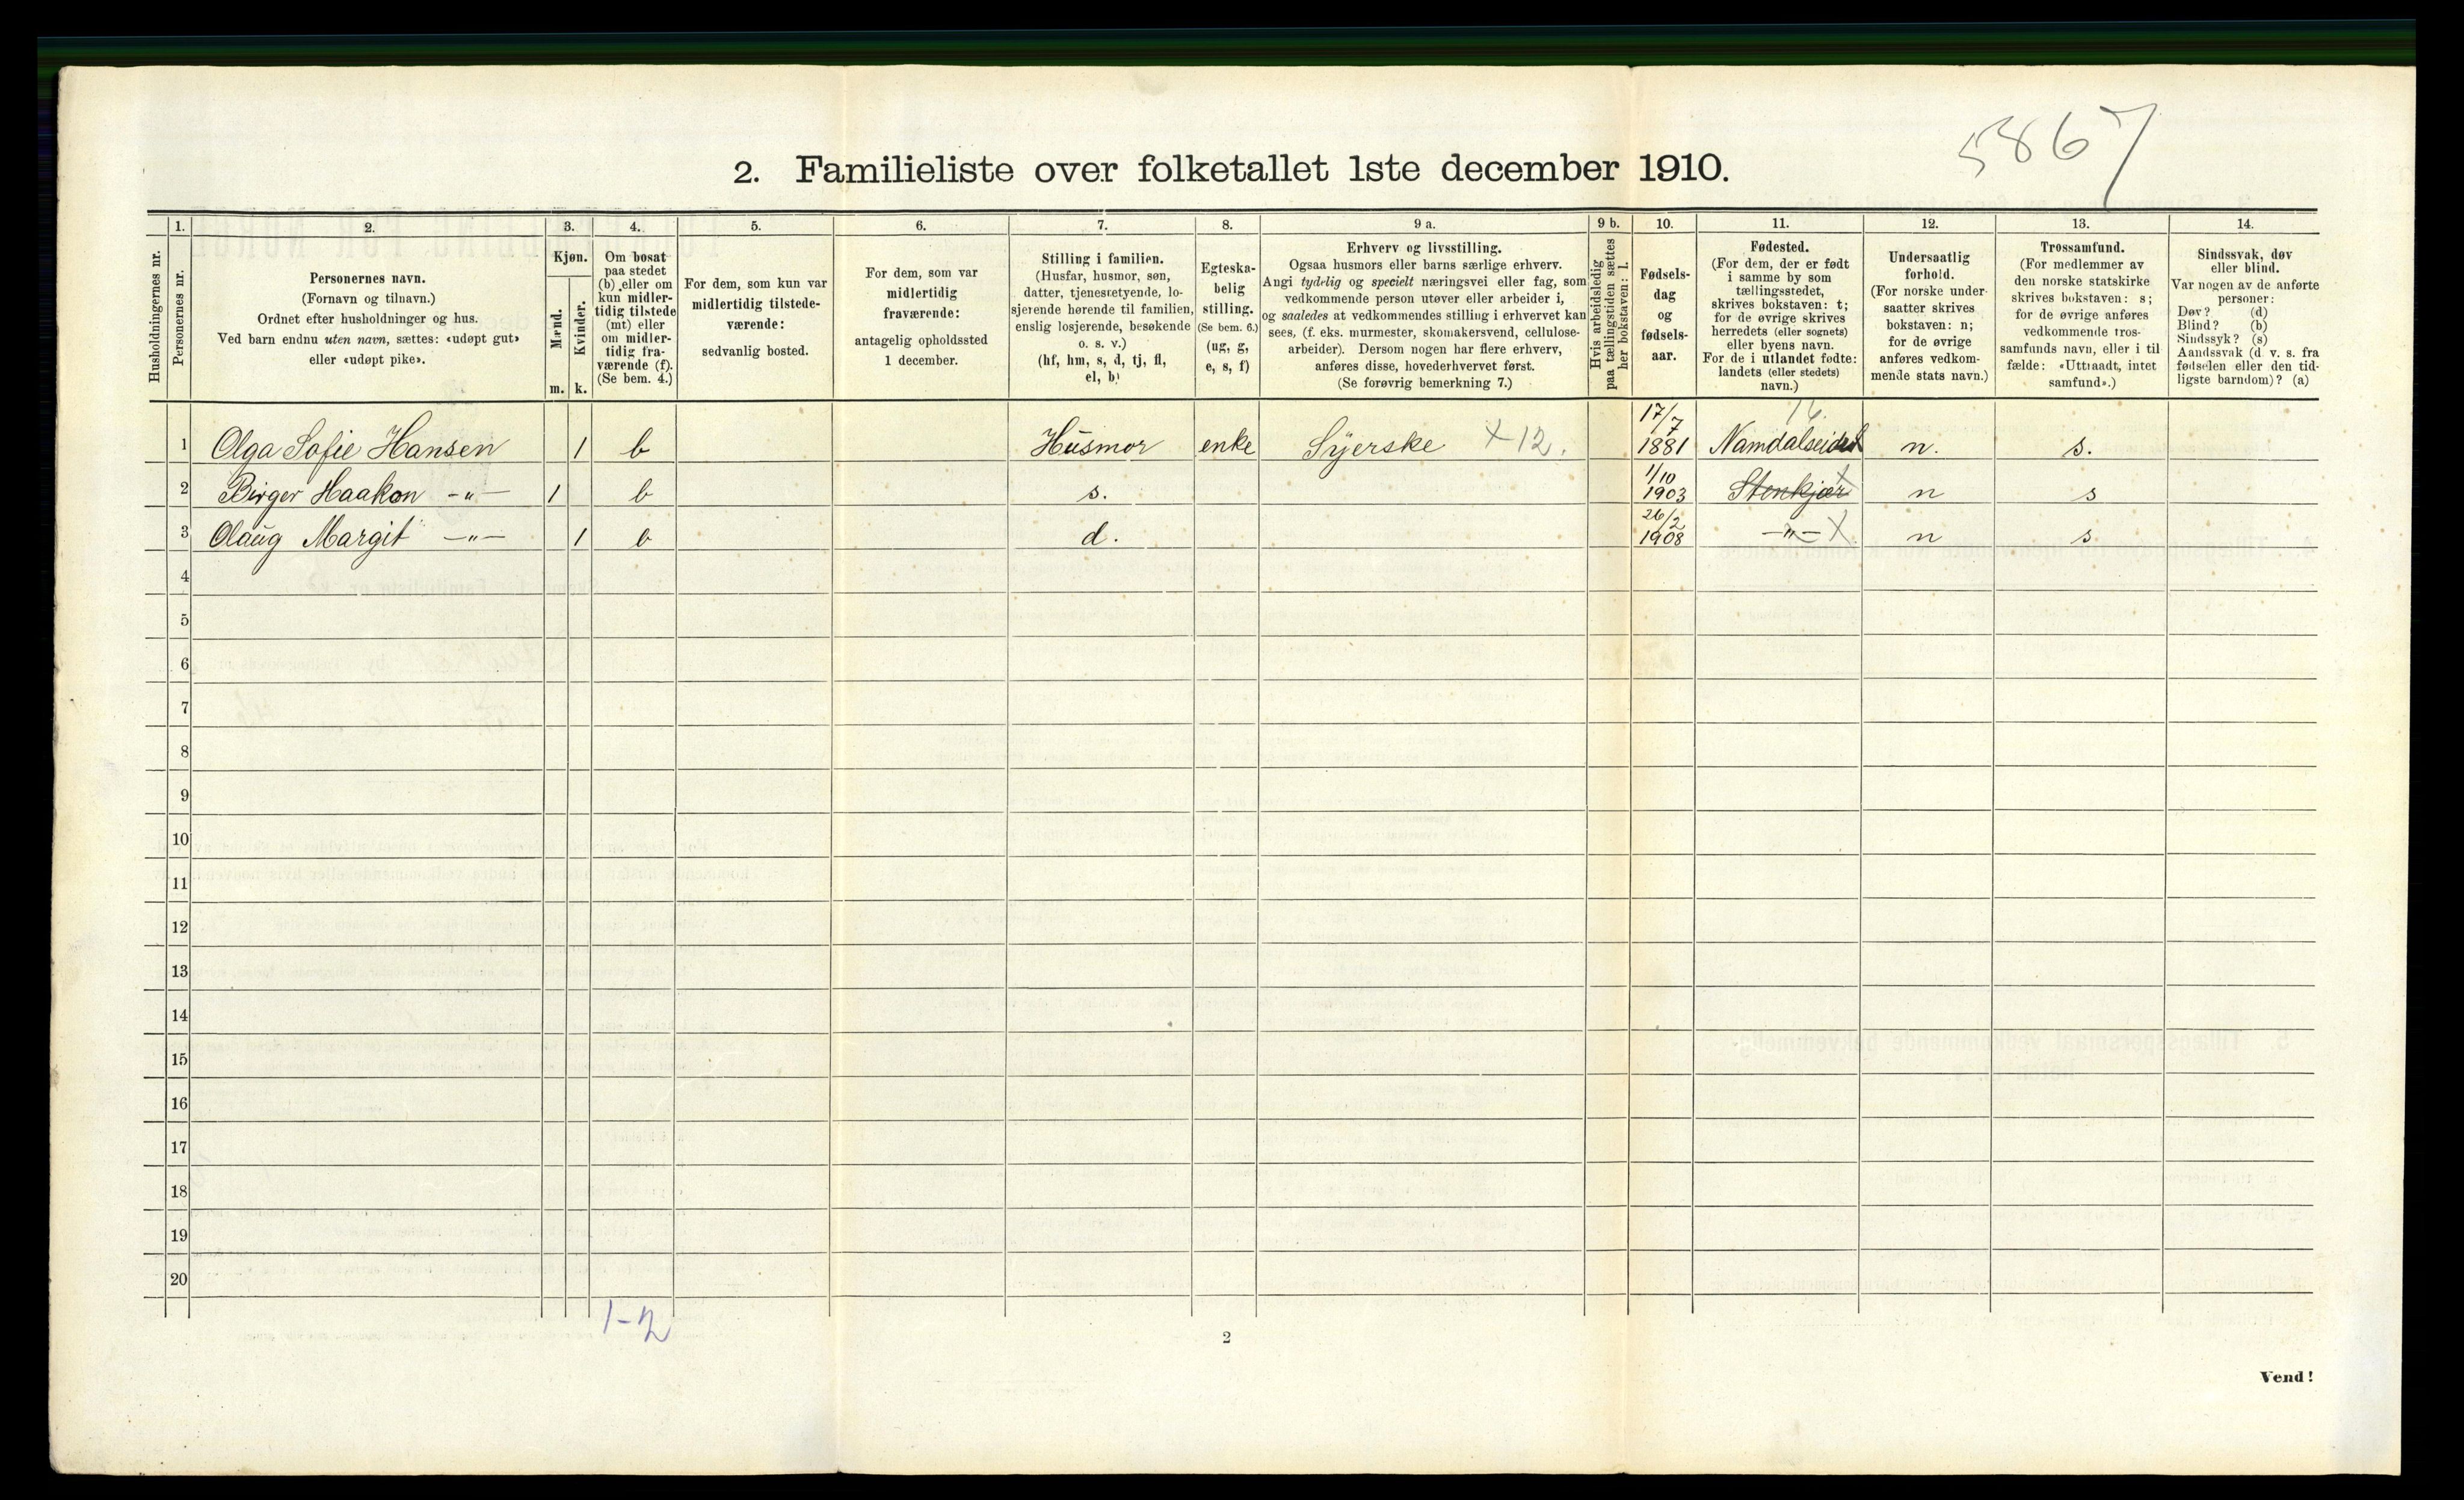 5867
2. Familieliste over folketallet 1ste december 1910.
Husholdningernes nr.
1.
Personernes nr.
2.
Personernes navn.
(Fornavn og tilnavn.)
Ordnet efter husholdninger og hus.
Ved barn endnu uten navn, sættes: «udøpt gut»
eller «udøpt pike».
3.
Kjøn.
Mænd.
Kvinder.
m. k.
4.
Om bosat
paa stedet
(b) eller om
kun midler-
tidig tilstede
(mt) eller
om midler-
tidig fra-
værende (f).
(Se bem. 4.)
5.
For dem, som kun var
midlertidig tilstede-
værende:
sedvanlig bosted.
6.
For dem, som var
midlertidig
fraværende:
antagelig opholdssted
1 december.
7.
Stilling i familien.
(Husfar, husmor, søn,
datter, tjenestetyende, lo-
sjerende hørende til familien,
enslig losjerende, besøkende
o. s. v.)
(hf, hm, s, d, tj, fl,
el, b)
8.
Egteska-
belig
stilling.
(Se bem. 6.)
(ug, g,
e, s, f)
9 a.
Erhverv og livsstilling.
Ogsaa husmors eller barns særlige erhverv.
Angi tydelig og specielt næringsvei eller fag, som
vedkommende person utøver eller arbeider i,
og saaledes at vedkommendes stilling i erhvervet kan
sees, (f. eks. murmester, skomakersvend, cellulose-
arbeider). Dersom nogen har flere erhverv,
anføres disse, hovederhvervet først.
(Se forøvrig bemerkning 7.)
9 b.
Hvis arbeidsledig
paa tællingstiden sættes
her bokstaven: l.
10.
Fødsels-
dag
og
fødsels-
aar.
11.
Fødested.
(For dem, der er født
i samme by som
tællingsstedet,
skrives bokstaven: t;
for de øvrige skrives
herredets (eller sognets)
eller byens navn.
For de i utlandet fødte:
landets (eller stedets)
navn.)
12.
Undersaatlig
forhold.
(For norske under-
saatter skrives
bokstaven: n;
for de øvrige
anføres vedkom-
mende stats navn.)
13.
Trossamfund.
(For medlemmer av
den norske statskirke
skrives bokstaven: s;
for de øvrige anføres
vedkommende tros-
samfunds navn, eller i til
fælde: «Uttraadt, intet
samfund».)
14.
Sindssvak, døv
eller blind.
Var nogen av de anførte
personer:
Døv? (d)
Blind? (b)
Sindssyk? (s)
Aandssvak (d. v. s. fra
fødselen eller den tid-
ligste barndom)? (a)
1 Olga Sofie Hansen 1 b Husmor enke Syerske X 12. 17/7 1881 Namdalseidet 16. n. s.
2 Birger Haakon -"- 1 b s. 1/10 1903 Stenkjær X n s
3 Olaug Margit -"- 1 b d. 26/2 1908 -"- X n s
4
5
6
7
8
9
10
11
12
13
14
15
16
17
18
19
20
1-2
2
Vend!